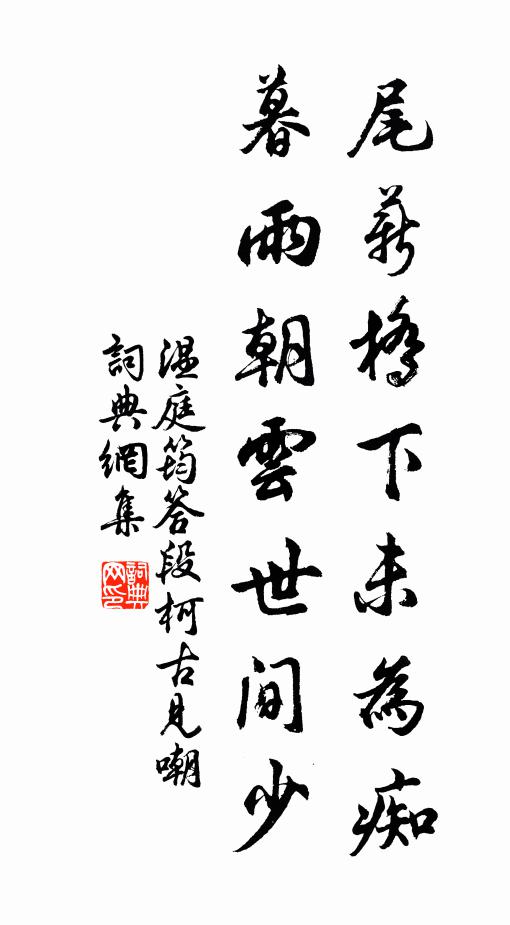 尾薪橋下未為痴
暮雨朝雲世間少
温庭筠答段柯古見嘲
詞典網集
詞典网印